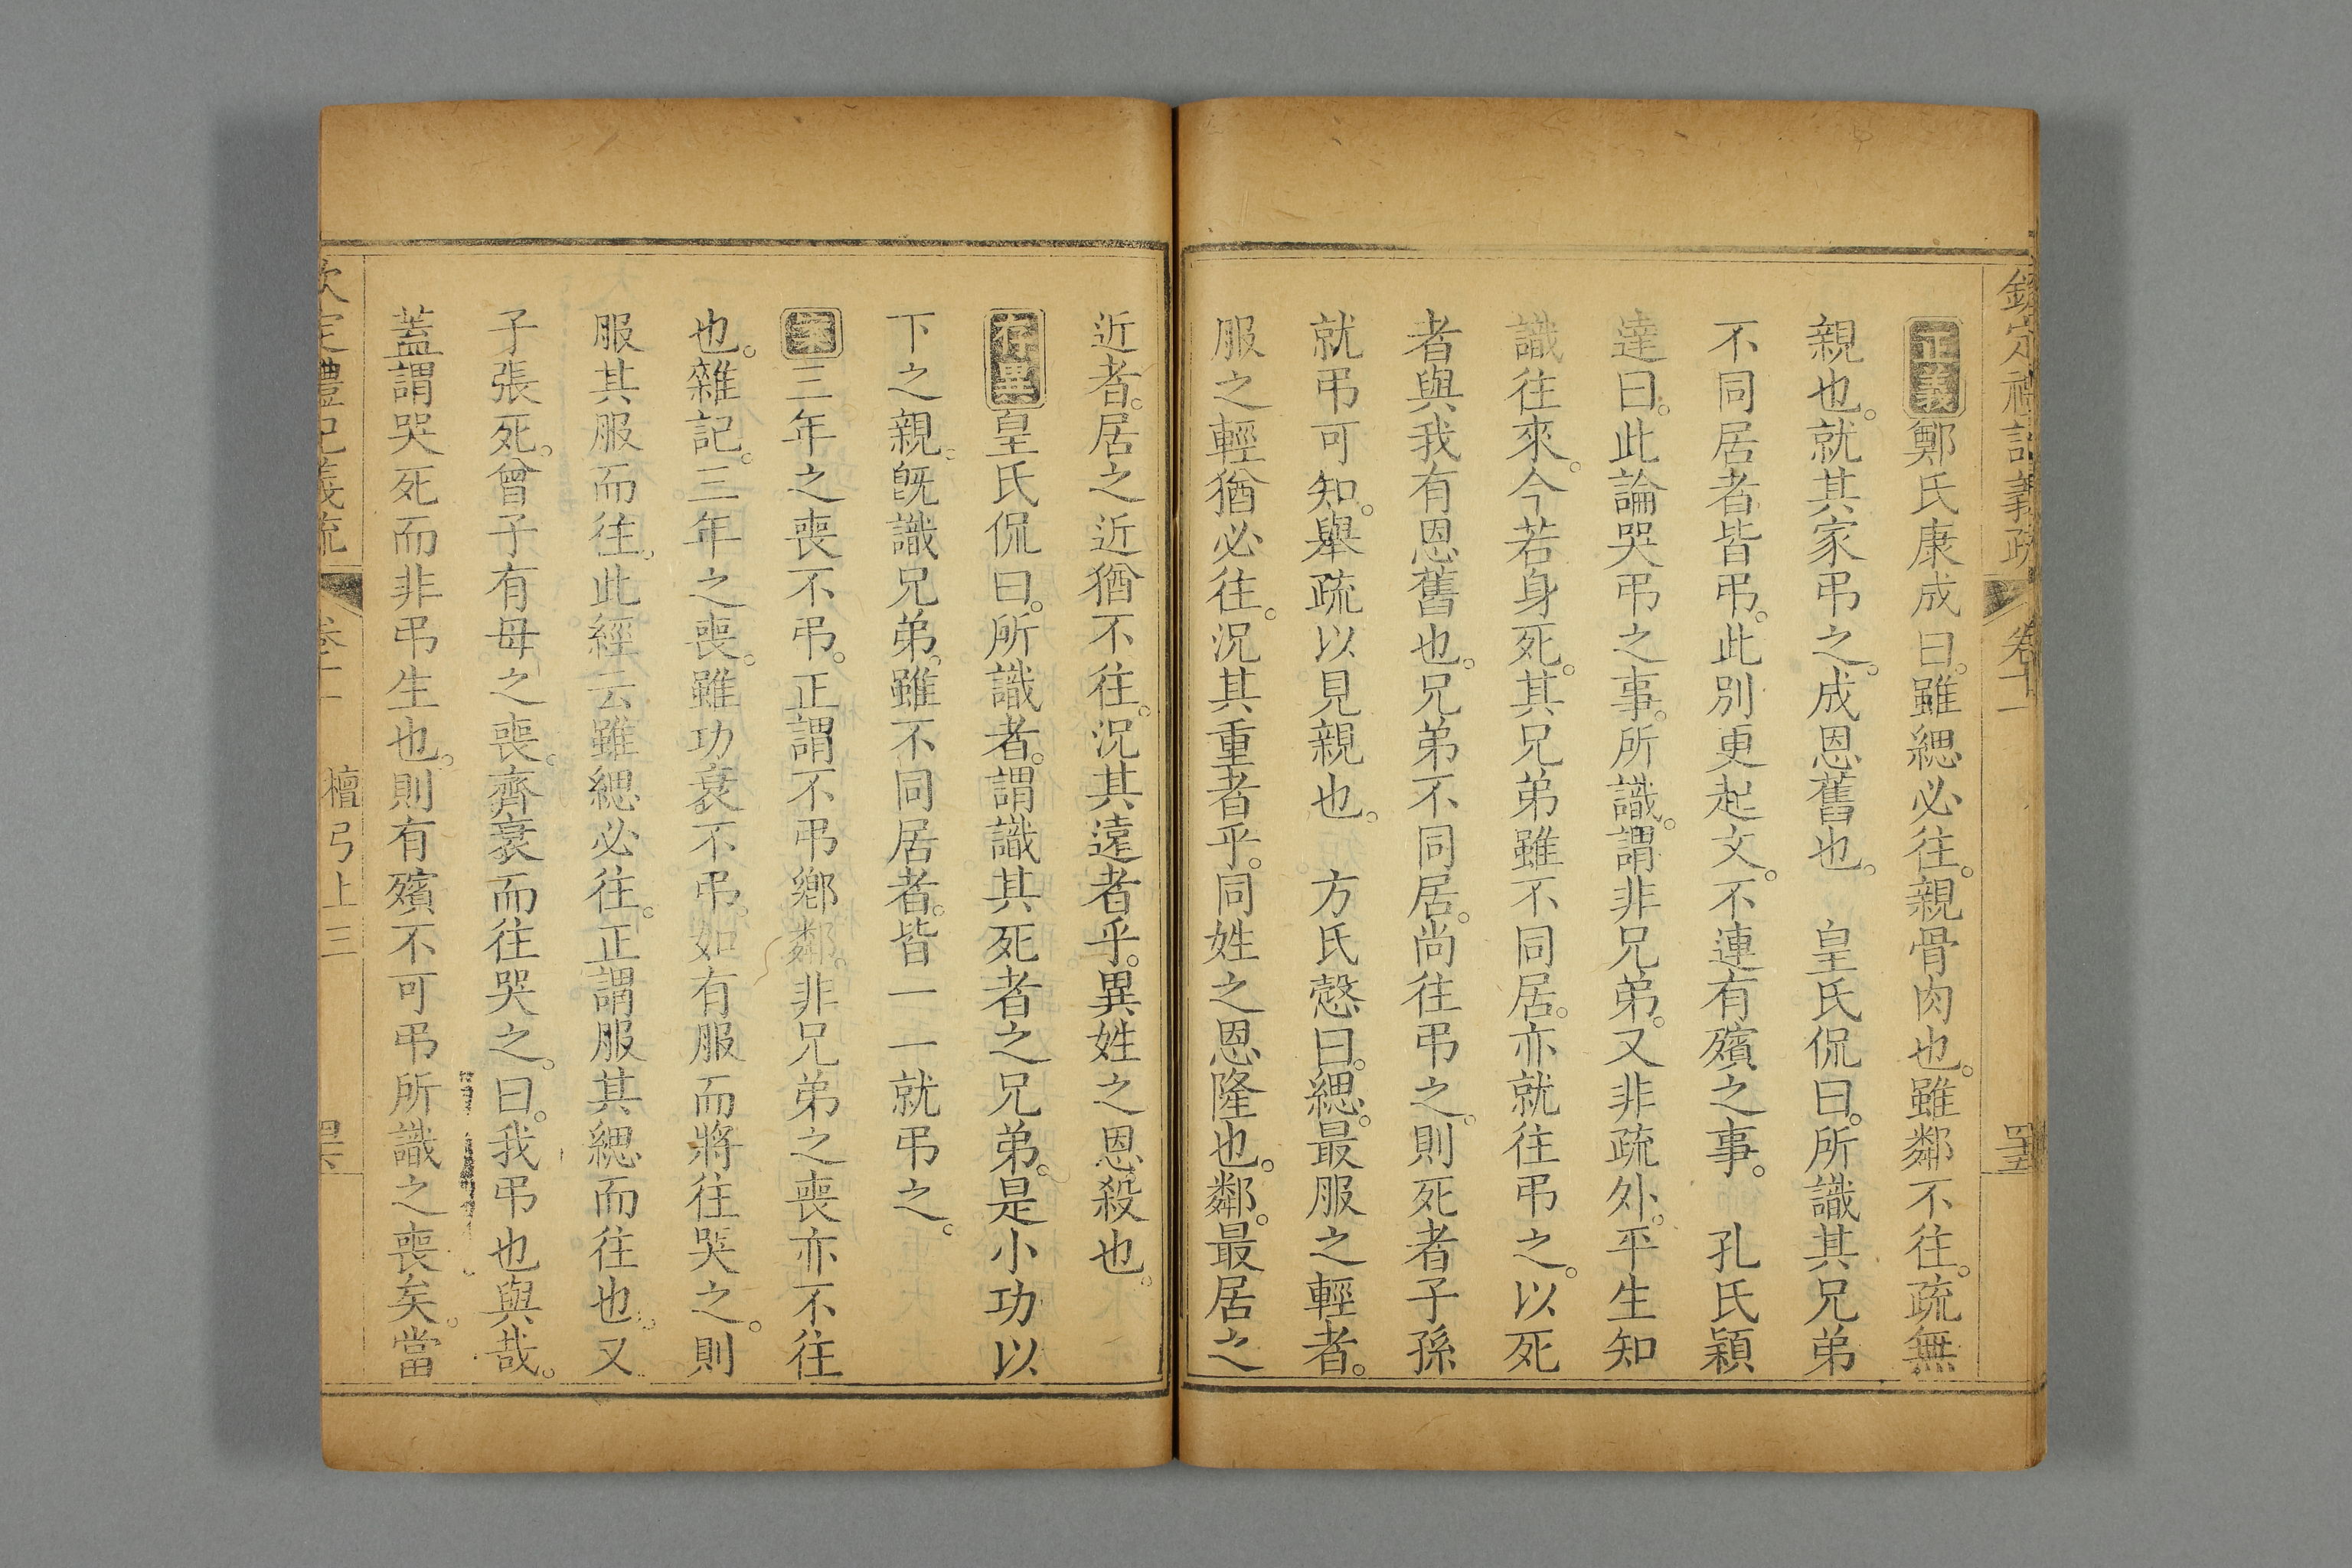 欽定禮記義疏 卷十一
正義鄭氏康成曰。雖緦必往。親骨肉也。雖鄰不往。疏無
親也。就其家弔之。成恩舊也。 皇氏侃曰。所識其兄弟
不同居者皆弔。此別更起文。不連有殯之事。 孔氏穎
達曰。此論哭弔之事。所識。謂非兄弟。又非疏外。平生知
識往來。今若身死。其兄弟雖不同居。亦就往弔之。以死
者與我有恩舊也。兄弟不同居。尚往弔之。則死者子孫
就弔可知。舉疏以見親也。 方氏慤曰。緦。最服之輕者。
服之輕猶必往。況其重者乎。同姓之恩隆也。鄰。最居之
近者。居之近猶不往。況其遠者乎。異姓之恩殺也。
存異皇氏侃曰。所識者。謂識其死者之兄弟。是小功以
下之親。旣識兄弟。雖不同居者。皆一一就弔之。
案三年之喪不弔。正謂不弔鄉鄰。非兄弟之喪亦不往
也。雜記。三年之喪。雖功衰不弔。如有服而將往哭之。則
服其服而往。此經云雖緦必往。正謂服其緦而往也。又
子張死。曾子有母之喪。齊衰而往哭之。曰。我弔也與哉。
蓋謂哭死而非弔生也。則有殯不可弔所識之喪矣。當
欽定禮記義疏 卷十一 檀弓上三